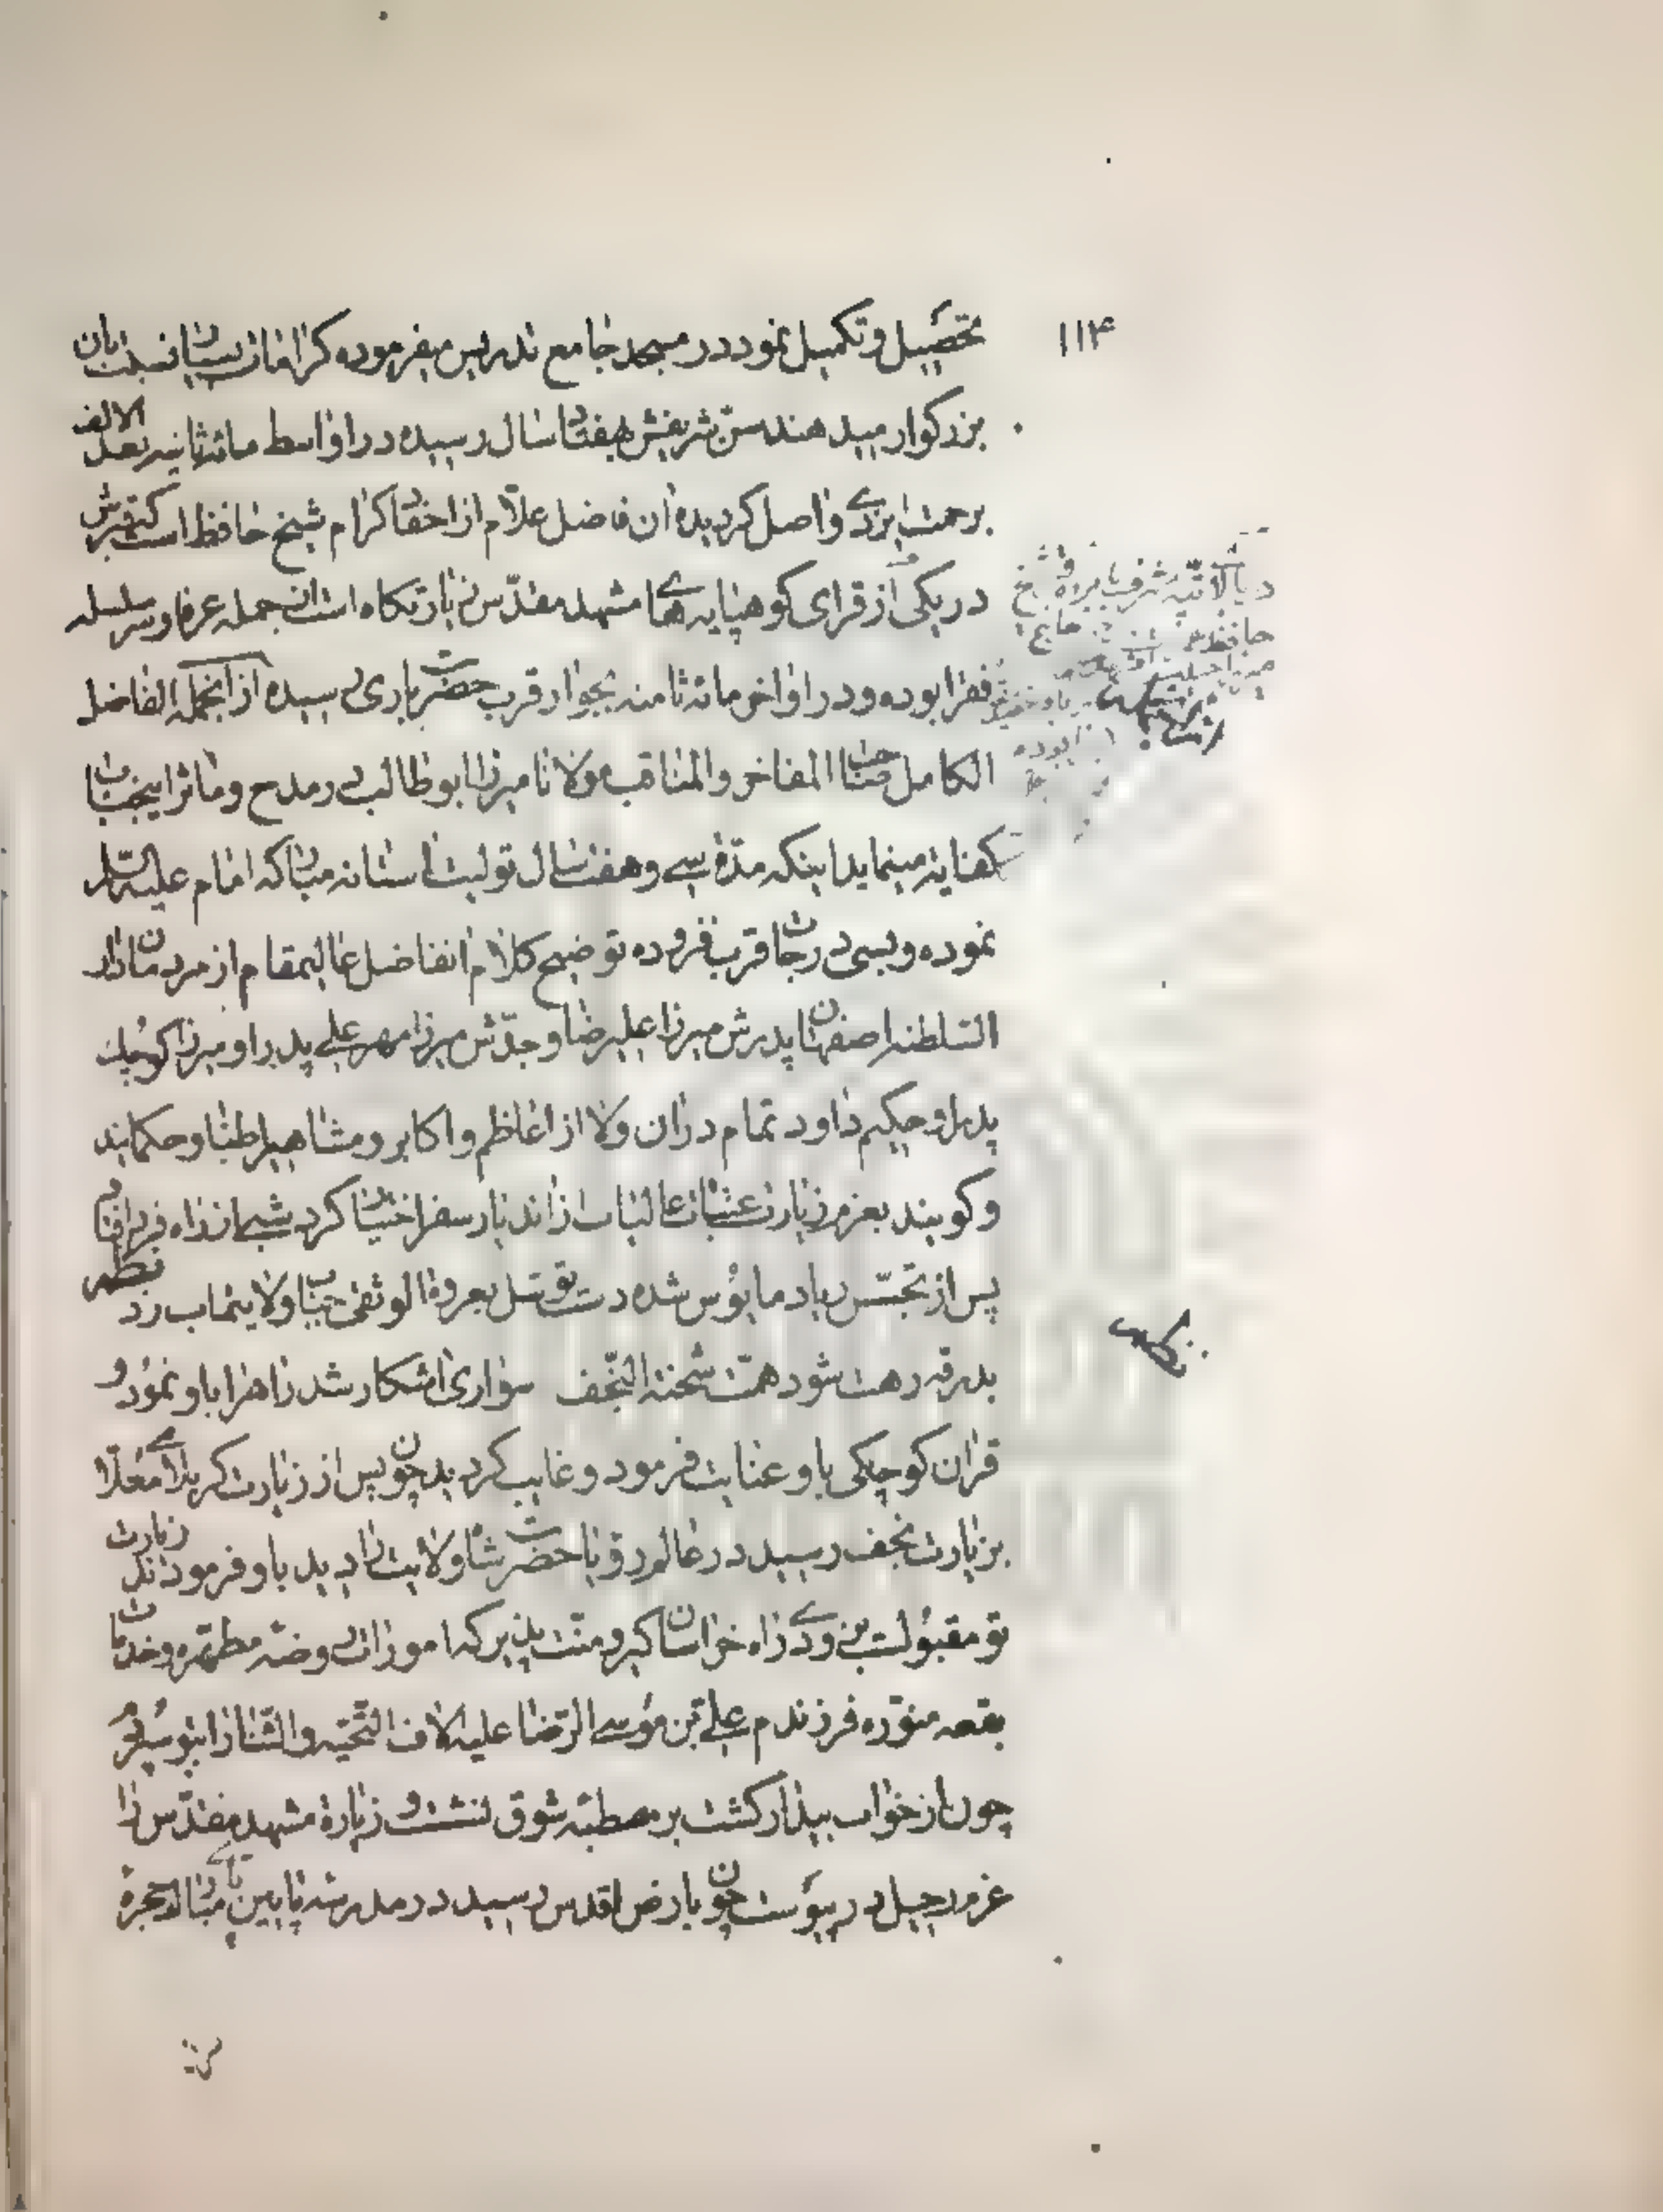 ۱۱۴
تحصیل و تکمیل نمود در مسجد جامع تدریس میفرموده کرامات بسیار نسبت بان
بزرکوار میدهند سن شریفش هفتاد سال رسیده در اواسط مائه ثانیه بعد الالف
برحمت ایزدی واصل کردیده ان فاضل علام از احفاد کرام شیخ حافظ است که قبرش
در یکی از قرای کوهپایه های مشهد مقدس زیارتکاه است از جمله عرفا و سر سلسله
فقرا بوده و در اواخر مائه ثامنه بجوار قرب حضرت باری رسیده از انجمله الفاضل
الکامل صاحب المفاخر والمناقب مولانا میرزا ابوطالب در مدح و ماثر اینجناب
کفایة مینماید اینکه مدة سی و هفت سال تولیت استانه مبارکه امام علیه السلام
نموده و بسی درجات قرب فزوده توضیح کلام انفاضل عالیمقام از مردمان دار
السلطنه اصفهان پدرش میرزا علیرضا و جدش میرزا مهر علی پدر او میرزا کوچک
پدر او حکیم داود تمام در ان ولا از اعاظم و اکابر و مشاهیر اطبا و حکمایند
و کویند بعزم زیارت عتبات عالیات از اندیار سفر اختیار کرد شبی از راه فرو افتاد
پس از تجسس زیاد مایوس شده دست توسل بعروة الوثقی جناب ولایتماب زد بنظم
بدرقه رهت شود همت شحنة النجف سواری اشکار شد راه را باو نمود و
قران کوچکی باو عنایت فرمود و غایب کردید چون پس از زیارت کربلای معلا
بزیارت نجف رسید در عالم رؤیا حضرت شاه ولایت را دید باو فرمودند زیارت
تو مقبولست بزودی راه خراسان کیر و منت پذیر که امورات روضه مطهره و خدمات
بقعه منوره فرزندم علی بن موسی الرضا علیه الاف التحیه والثنا را بتو سپردم
چون از خواب بیدار کشت بر مصطبه شوق نشست و زیارة مشهد مقدس را
عزم رحیل در پیوست چون بارض اقدس رسید در مدرسه پایین پای مبارک حجرة